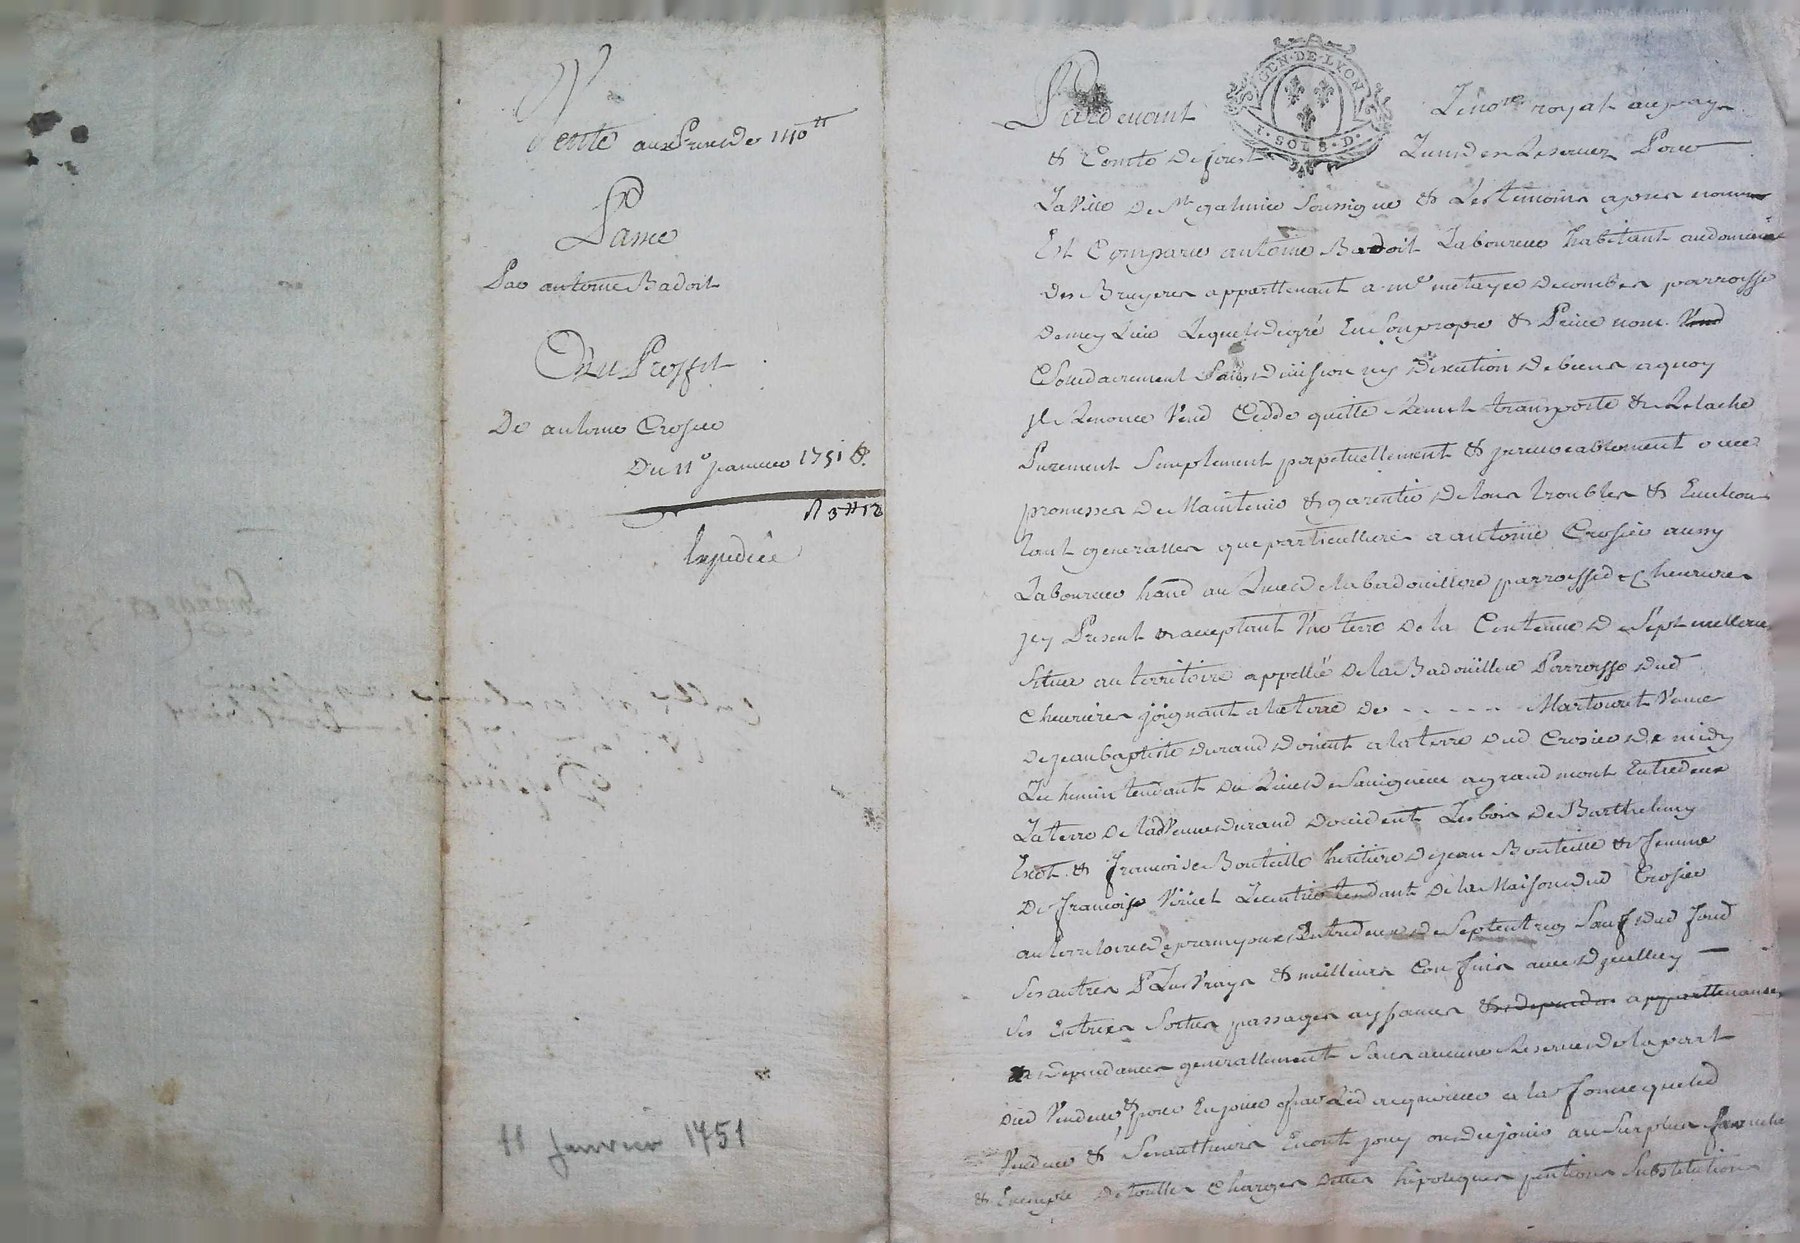 Vente aux Prix De 140 ͭ ͭ
Passee
Par antoine Badoit
Au Proffit
De antoine Crosier
Du 11e jeanvier 1751 &
Expediée
11 Janvier 1751
GEN·DE·LYON
1·SOLS·D·
Pardevant Le no.re royal au pays
& Comté De forest Reservez Pour
La Ville De St galmier Soussigné & Les temoins apres nommes
Est Comparu antoine Badoit Laboureur habitant au domaine
Des Bruyeres appartenant a mr metayer Decombes parroisse
Lequel De gré En Son propre & Privé nom
Solidairement Sans Division ny Discution De biens a quoy
jl Renonce Vend Cedde quitte Remet transporte & Relache
Purement Simplement perpetuellement & jrrevocablement avec
promesses De Maintenir & garentir De tous troubles & Evictions
tant generalles que particullieres a antoine Crosier aussy
Laboureur au Lieu De la badouillere parroisse de Chevrieres
jcy Present & acceptant Une terre De la Contenue De Sept
Situee au territoire appellé De la Badoüillere Parroisse Dud
Chevrieres joignant a la terre De - - - - - Martouret Veuve
De jean baptiste Durand D'orient a la terre Dud Crosier De midy
Le chemin tendant Du Lieu De a grand mont Entredeux
La terre De lad Veuve Durand D'occident Les bois De Barthelemy
& francoise Bouteille heritiere De jean Bouteille & femme
De francois tendant De la Maison Dud Crosier
au territoire De Entredeux De Septentrion Sauf Dud fond
Ses autres Plus Vrays & meilleurs Confins avec D'jcelluy
Ses Entrees Sorties passages aysances appartenances
& Dependances generallement Sans aucune Reserve De la part
Dud Vendeur pour En jouir par Led acquereur a la forme que led
Vendeur & Ses autheurs En ont jouy ou Du jouir au Surplus franche
& Exempte De touttes Charges Dettes hipoteques pentions Substitutions